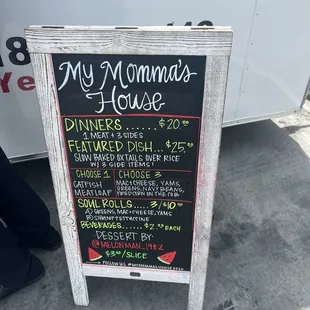 My Momma's
House
DINNERS...... $20.00
1 MEAT + 3 SIDES
FEATURED DISH... $25.00
SLOW BAKED OXTAILS OVER RICE
W/ 3 SIDE ITEMS!
CHOOSE 1 CHOOSE 3
CATFISH MAC+CHEESE, YAMS,
MEATLOAF GREENS, NAVY BEANS,
FRIED CORN ON THE COB
SOUL ROLLS..... 3/$10.00
A) GREENS, MAC+CHEESE, YAMS
B) SHRIMP FETTUCCINE
BEVERAGES..... $2.00 EACH
DESSERT BY:
@MELONMAN_1982
$3.00/SLICE
FOLLOW US